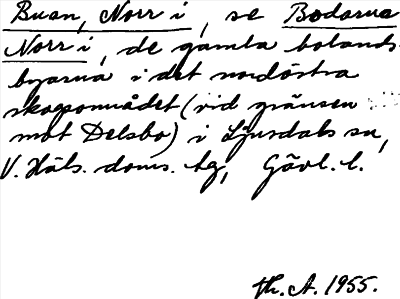 Buan, Norr i, se Bodarna
Norr i, de gamla bolands-
byarna i det nordöstra
skogsområdet (vid gränsen
mot Delsbo) i Ljusdals sn,
V. Häls. doms. tg, Gävl. l.
Th. A. 1955.